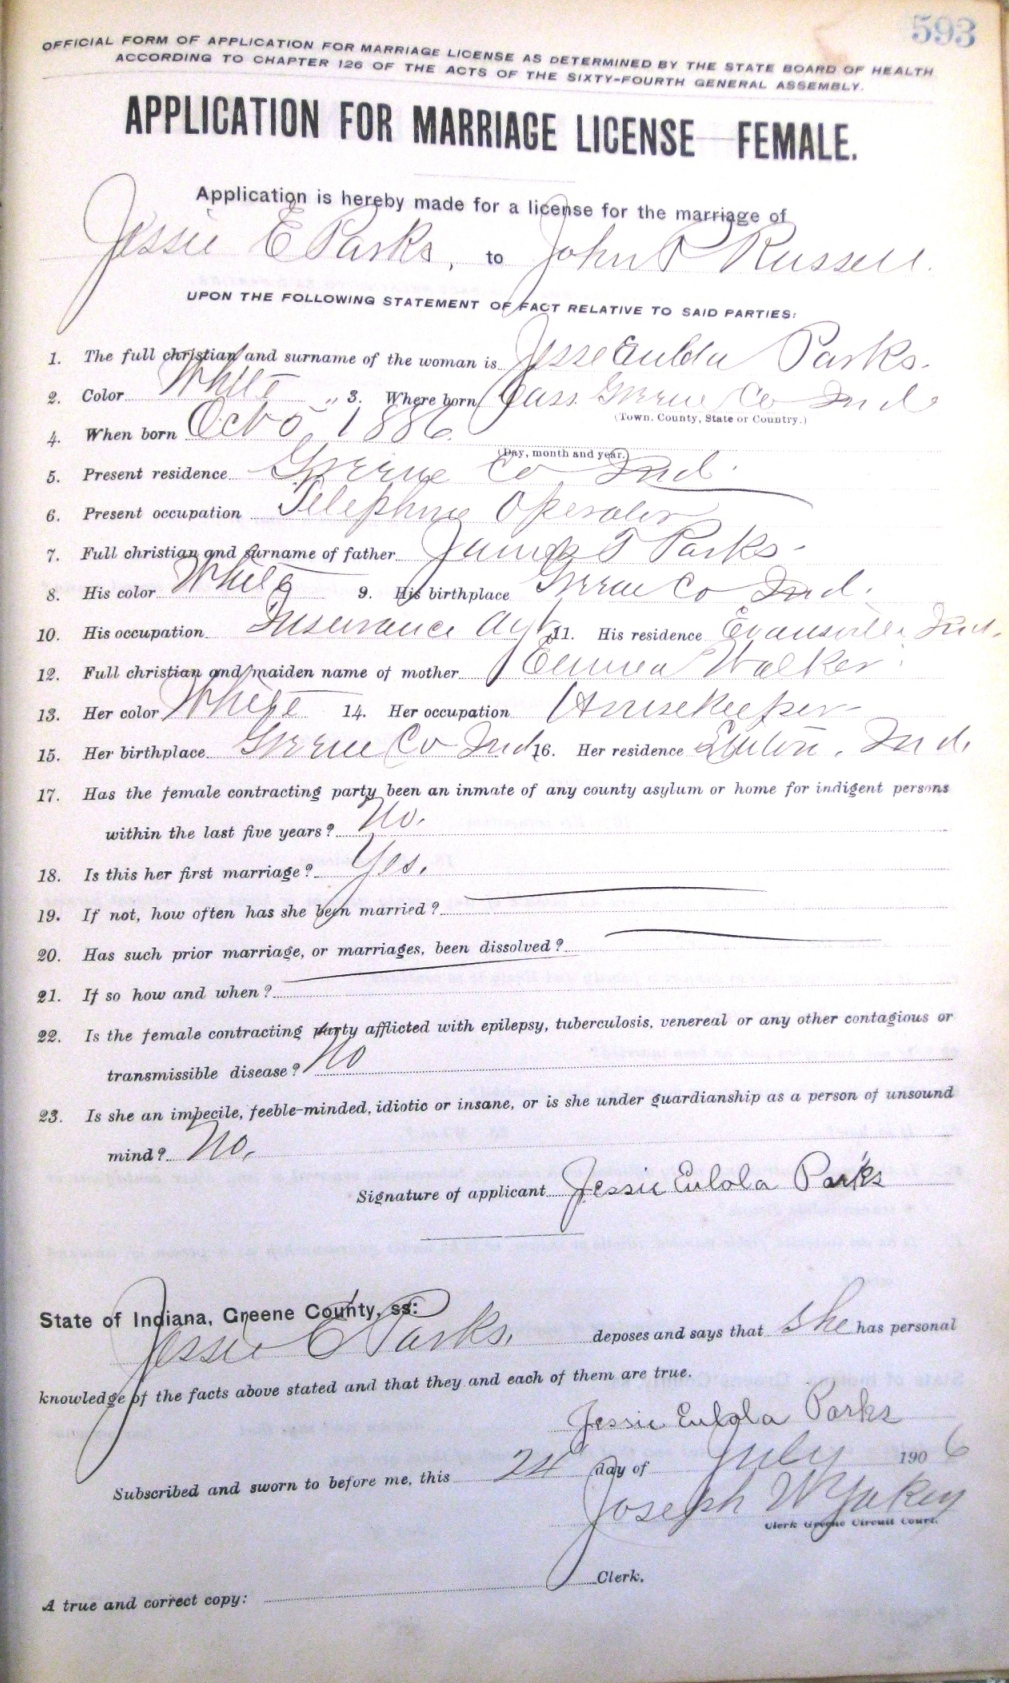 593
OFFICIAL FORM OF APPLICATION FOR MARRIAGE LICENSE AS DETERMINED BY THE STATE BOARD OF HEALTH
ACCORDING TO CHAPTER 126 OF THE ACTS OF THE SIXTY-FOURTH GENERAL ASSEMBLY.
APPLICATION FOR MARRIAGE LICENSE FEMALE.
Application is hereby made for a license for the marriage of
Jessie E Parks, to John P Russell.
UPON THE FOLLOWING STATEMENT OF FACT RELATIVE TO SAID PARTIES:
1. The full christian and surname of the woman is Jesse Eulola Parks.
2. Color White 3. Where born Cass. Greene Co Ind
(Town, County, State or Country.)
4. When born Oct 5 1886
(Day, month and year.)
5. Present residence Greene Co Ind.
6. Present occupation Telephone Operator
7. Full christian and surname of father James T Parks
8. His color White 9. His birthplace Greene Co Ind.
10. His occupation Insurance Agt. 11. His residence Evansville Ind.
12. Full christian and maiden name of mother Emma Walker
13. Her color White 14. Her occupation Housekeeper
15. Her birthplace Greene Co Ind. 16. Her residence Linton, Ind.
17. Has the female contracting party been an inmate of any county asylum or home for indigent persons
within the last five years? No.
18. Is this her first marriage? Yes.
19. If not, how often has she been married?
20. Has such prior marriage, or marriages, been dissolved?
21. If so how and when?
22. Is the female contracting party afflicted with epilepsy, tuberculosis, venereal or any other contagious or
transmissible disease? No
23. Is she an impecile, feeble-minded, idiotic or insane, or is she under guardianship as a person of unsound
mind? No.
Signature of applicant Jessie Eulola Parks
State of Indiana, Greene County, ss:
Jessie E Parks. deposes and says that She has personal
knowledge of the facts above stated and that they and each of them are true.
Jessie Eulola Parks
Subscribed and sworn to before me, this 24 day of July 1906
Joseph W Yakey
Clerk Greene Circuit Court.
Clerk.
A true and correct copy: